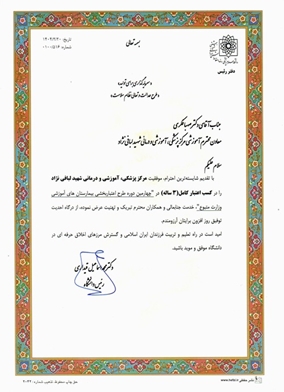 بسمه تعالی
تاریخ: ۱۴۰۴/۲/۳۰
شماره: ۱۰۰/۵۱۶
دفتر رئیس
جناب آقای دکتر
معاون محترم آموزشی مرکز پزشکی، آموزشی و درمانی شهید لبافی نژاد
سلام علیکم
با تقدیم شایسته‌ترین احترام، موفقیت مرکز پزشکی، آموزشی و درمانی شهید لبافی نژاد
را در کسب اعتبار کامل (۳ ساله) در "چهارمین دوره طرح اعتباربخشی بیمارستان های آموزشی
وزارت متبوع"، خدمت جنابعالی و همکاران محترم تبریک و تهنیت عرض نموده، از درگاه احدیت
توفیق روز افزون برایتان آرزومندم.
امید است در راه تعلیم و تربیت فرزندان ایران اسلامی و گسترش مرزهای اخلاق حرفه ای در
دانشگاه موفق و موید باشید.
دکتر
رئیس دانشگاه